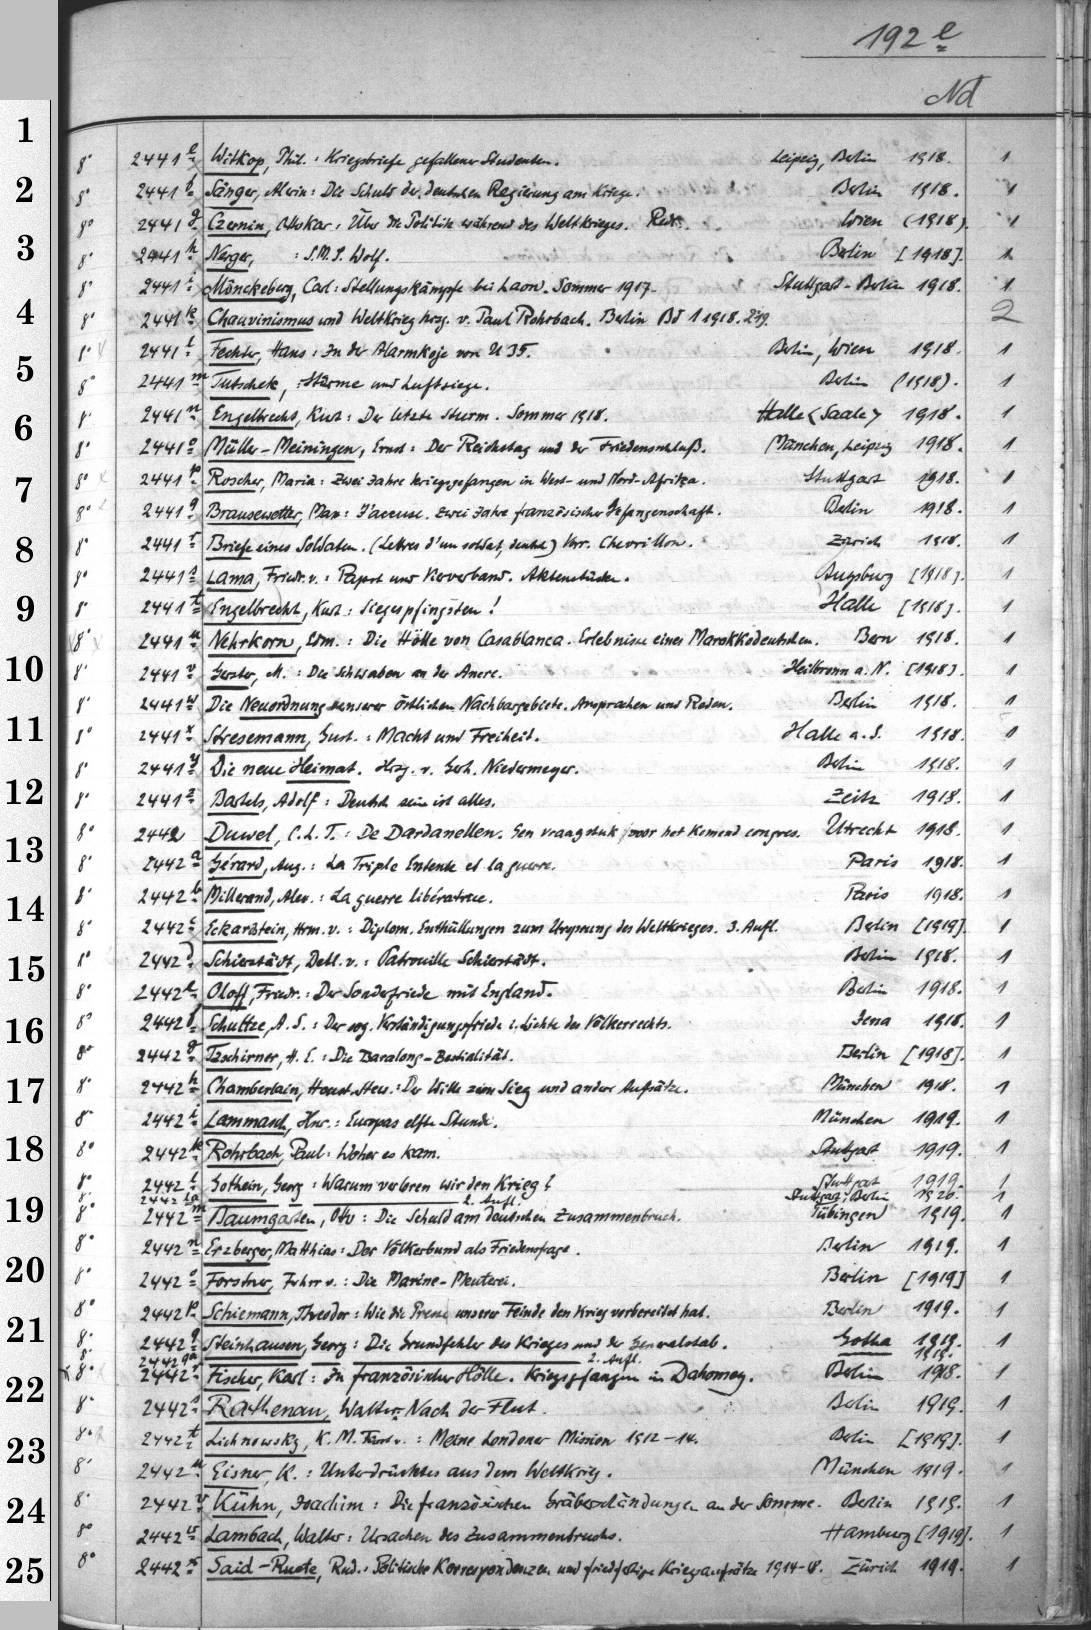 192 e
Nd
1
8° 2441 e Witkop, Phil.: Kriegsbriefe gefallener Studenten. Leipzig, Berlin 1918. 1
2
8° 2441 f Sänger, Alwin: Die Schuld der deutschen Regierung am Kriege. Berlin 1918. 1
8° 2441 g Czernin, Ottokar: Über die Politik während des Weltkrieges. Rede. Wien (1918). 1
3
8° 2441 h Nerger, : S.M.S. Wolf. Berlin [1918]. 1
8° 2441 i Mönckeberg, Carl: Stellungskämpfe bei Laon. Sommer 1917. Stuttgart-Berlin 1918. 1
4
8° 2441 k Chauvinismus und Weltkrieg hrzg. v. Paul Rohrbach. Berlin Bd 1 1918. 2 19. 2
8° 2441 l Fechter, Hans: In der Alarmkoje von U 35. Berlin, Wien 1918. 1
5
8° 2441 m Tutschek, : Stürme und Luftsiege. Berlin (1918). 1
8° 2441 n Engelbrecht, Kurt: Der letzte Sturm. Sommer 1918. Halle (Saale) 1918. 1
6
8° 2441 o Müller-Meiningen, Ernst: Der Reichstag und der Friedensschluß. München, Leipzig 1918. 1
8° 2441 p Roscher, Maria: Zwei Jahre kriegsgefangen in West- und Nord-Afrika. Stuttgart 1918. 1
7
8° 2441 q Brausewetter, Max: J'accuse. Zwei Jahre französischer Gefangenschaft. Berlin 1918. 1
8
8° 2441 r Briefe eines Soldaten. (Lettres d'un soldat, deutsch) Vorr. Chevrillon. Zürich 1918. 1
8° 2441 s Lama, Friedr. v.: Papst und Vierverband. Aktenstücke. Augsburg [1918]. 1
9
8° 2441 t Engelbrecht, Kurt: Siegespfingsten! Halle [1918]. 1
8° 2441 u Nehrkorn, Edm.: Die Hölle von Casablanca. Erlebnisse eines Marokkodeutschen. Bern 1918. 1
10
8° 2441 v Gerster, M.: Die Schwaben an der Ancre. Heilbronn a. N. [1918]. 1
8° 2441 w Die Neuordnung unserer östlichen Nachbargebiete. Ansprachen und Reden. Berlin 1918. 1
11
8° 2441 x Stresemann, Gust.: Macht und Freiheit. Halle a. S. 1918. 1
8° 2441 y Die neue Heimat. Hrsg. v. Gerh. Niedermeyer. Berlin 1918. 1
12
8° 2441 z Bartels, Adolf: Deutsch sein ist alles. Zeitz 1918. 1
8° 2442 Duwel, C.L.T.: De Dardanellen. Een vraagstuk voor het komend congres. Utrecht 1918. 1
13
8° 2442 a Gérard, Aug.: La Triple Entente et la guerre. Paris 1918. 1
8° 2442 b Millerand, Alex.: La guerre libératrice. Paris 1918. 1
14
8° 2442 c Eckardstein, Hrm. v.: Diplom. Enthüllungen zum Ursprung des Weltkrieges. 3. Aufl. Berlin [1919]. 1
8° 2442 d Schierstädt, Detl. v.: Patrouille Schierstädt. Berlin 1918. 1
15
8° 2442 e Oloff, Friedr.: Der Sonderfriede mit England. Berlin 1918. 1
8° 2442 f Schultze, A. S.: Der sog. Verständigungsfriede i. Lichte des Völkerrechts. Jena 1918. 1
16
8° 2442 g Tzschirner, H. E.: Die Baralong-Bestialität. Berlin [1918]. 1
8° 2442 h Chamberlain, Houst. Stew.: Der Wille zum Sieg und andere Aufsätze. München 1918. 1
17
8° 2442 i Lammasch, Hnr.: Europas elfte Stunde. München 1919. 1
18
8° 2442 k Rohrbach, Paul: Woher es kam. Stuttgart 1919. 1
8° 2442 l Gothein, Georg: Warum verloren wir den Krieg? Stuttgart 1919. 1
8° 2442 la 2. Aufl. Stuttgart, Berlin 1920. 1
19
8° 2442 m Baumgarten, Otto: Die Schuld am deutschen Zusammenbruch. Tübingen 1919. 1
8° 2442 n Erzberger, Matthias: Der Völkerbund als Friedensfrage. Berlin 1919. 1
20
8° 2442 o Forstner, Frhrr v.: Die Marine-Meuterei. Berlin [1919] 1
8° 2442 p Schiemann, Theodor: Wie die Presse unserer Feinde den Krieg vorbereitet hat. Berlin 1919. 1
21
8° 2442 q Steinhausen, Georg: Die Grundfehler des Krieges und der Generalstab. Gotha 1919. 1
8° 2442 qa 2. Aufl. 1919.
8° 2442 r Fischer, Karl: In französischer Hölle. Kriegsgefangen in Dahomey. Berlin 1918. 1
22
8° 2442 s Rathenau, Walter: Nach der Flut. Berlin 1919. 1
8° 2442 t Lichnowsky, K. M. Fürst v.: Meine Londoner Mission 1912-14. Berlin [1919]. 1
23
8° 2442 u Eisner, K.: Unterdrücktes aus dem Weltkrieg. München 1919. 1
8° 2442 v Kühn, Joachim: Die französischen Gräberschändungen an der Somme. Berlin 1919. 1
24
8° 2442 w Lambach, Walter: Ursachen des Zusammenbruchs. Hamburg [1919]. 1
25
8° 2442 x Said-Ruete, Rud.: Politische Korrespondenzen und friedfertige Kriegsaufsätze 1914-18. Zürich 1919. 1